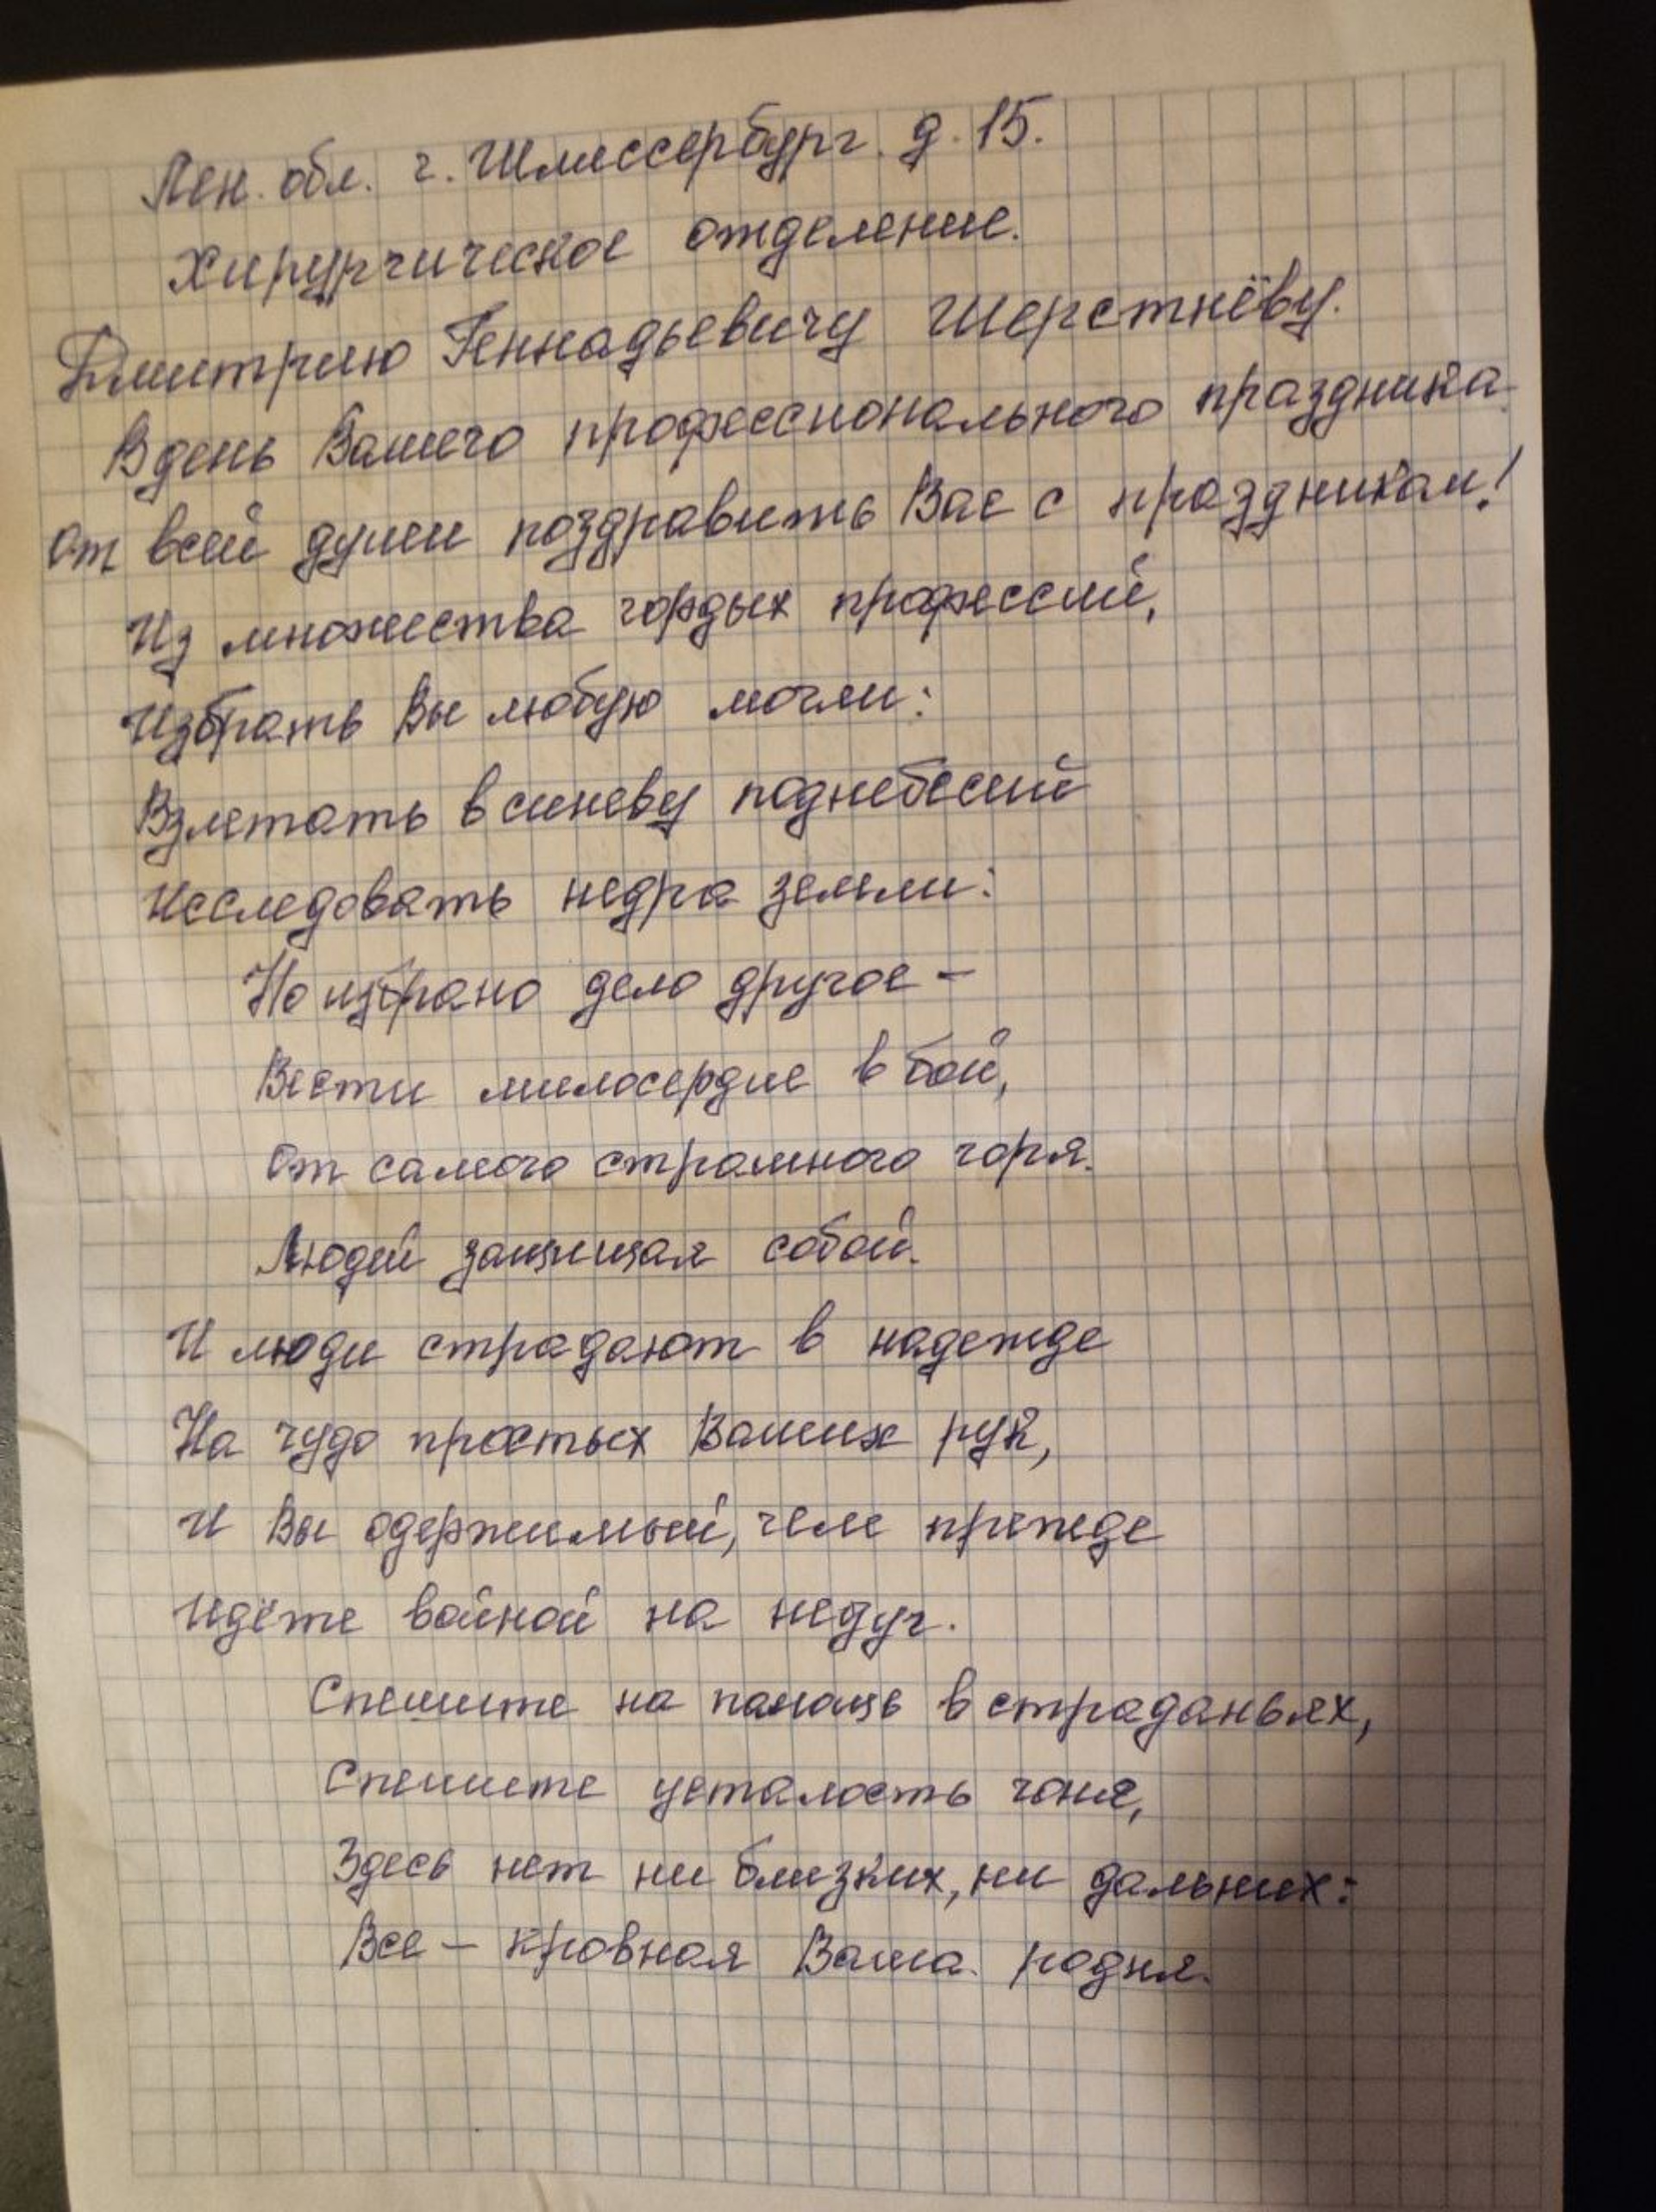 Лен. обл. г. Шлиссербург. д. 15.
Хирургическое отделение.
Дмитрию Геннадьевичу Шерстнёву.
В день Вашего профессионального праздника
От всей души поздравить Вас с праздником!
Из множества гордых профессий,
Избрать Вы любую могли:
Взлетать в синеву поднебесий
Исследовать недра земли:
Но избрано дело другое –
Вести милосердие в бой,
От самого страшного горя.
Людей защищая собой.
И люди страдают в надежде
На чудо простых Ваших рук,
И Вы одержимый, чем прежде
Идёте войной на недуг.
Спешите на помощь в страданьях,
Спешите усталость гоня,
Здесь нет ни близких, ни дальних:
Все – кровная Ваша родня.